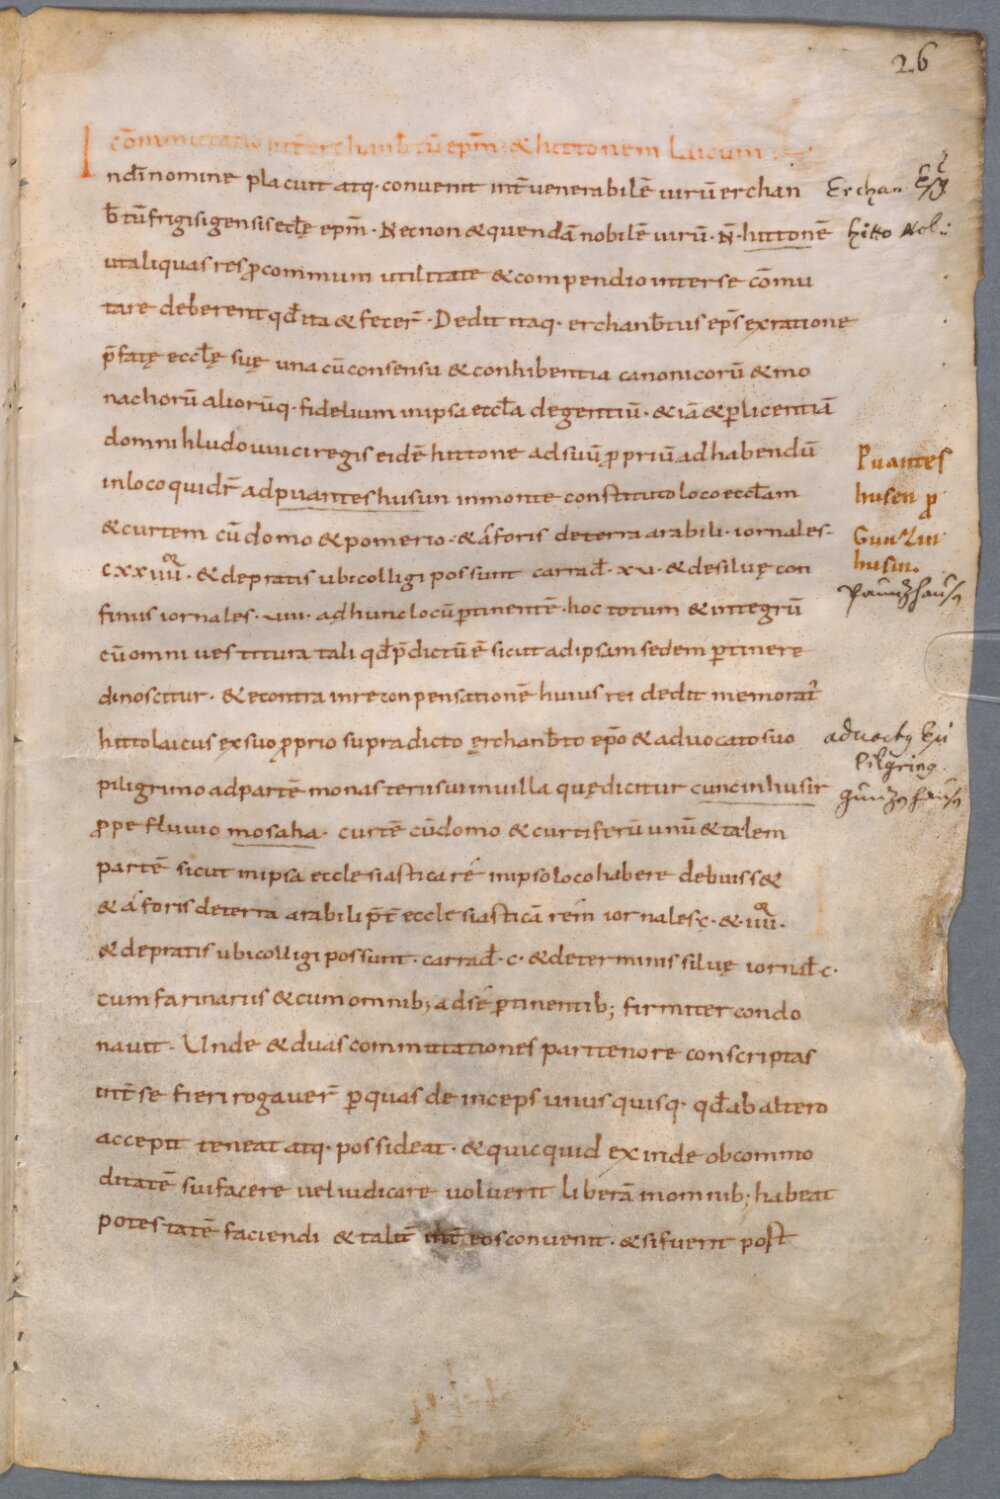 26
cōmmutatio int̄ erchanb̄tū ep̄m & hittonem laicum
Indī nomine placuit atq· convenit int̄ venerabilē virū erchan
b̄tū frigisigensis eccl̄ę ep̄m · Necnon & quendā nobilē virū · N̄ · hittonē
ut aliquas res ꝓ commum utilitate & compendio inter se cōmu
tare deberent qd̄ ita & fecer̄ · Dedit itaq· erchanb̄tus ep̄s ex ratione
p̄fatę eccl̄ę suę una cū consensu & conhibentia canonicorū & mo
nachorū aliorūq· fidelium in ipsa eccl̄a degentiū · & iā & ꝑ licentiā
domni hludouuici regis eidē hittone ad suū ꝓprium ad habendū
in loco qui dr̄ ad puanteshusun in monte constituto loco eccl̄am
& curtem cū domo & pomerio · & á foris de terra arabili · iornales ·
cxxiiii^or · & de pratis ubi colligi possunt carrad̄ · xv · & de siluę con
finiis iornales · viii · ad hunc locū ꝑtinentē · hoc totum & integrū
cū omni vestitura tali qd̄ p̄dictū ē sicut ad ipsam sedem ꝑtinere
dinoscitur · & econtra in reconpensationē huius rei dedit memorat̄
hitto laicus ex suo ꝓprio supradicto erchanb̄to ep̄o & advocato suo
piligrimo ad partē monasterii sui in villa quę dicitur cuncinhusir
ꝓpe fluvio mosaha · curtē cū domo & curtiferū unū & talem
partē sicut in ipsa ecclesiastica ré in ipso loco habere debuiss&
& á foris de terra arabili p̄t̄ ecclesiasticā rem iornales · c · & · iiii^or ·
& de pratis ubi colligi possunt · carrad̄ · c · & de terminis siluę iornal̄ c ·
cum farinariis & cum omnib; ad sé ꝑtinentib; firmiter condo
navit · Unde & duas commutationes pari tenore conscriptas
int̄ se fieri rogaver̄ ꝑ quas deinceps unusquisq· qd̄ ab altero
accepit teneat atq· possideat · & quicquid exinde ob commo
ditatē sui facere vel iudicare voluerit liberā in omnib; habeat
potestatē faciendi & talit̄ int̄ eos convenit · & si fuerit post
Erchan
hitto Nob
Puantes
husen ꝓ
Gunzin
husin.
Paunzhausn
advocatus
Pilgring
gunzhausn